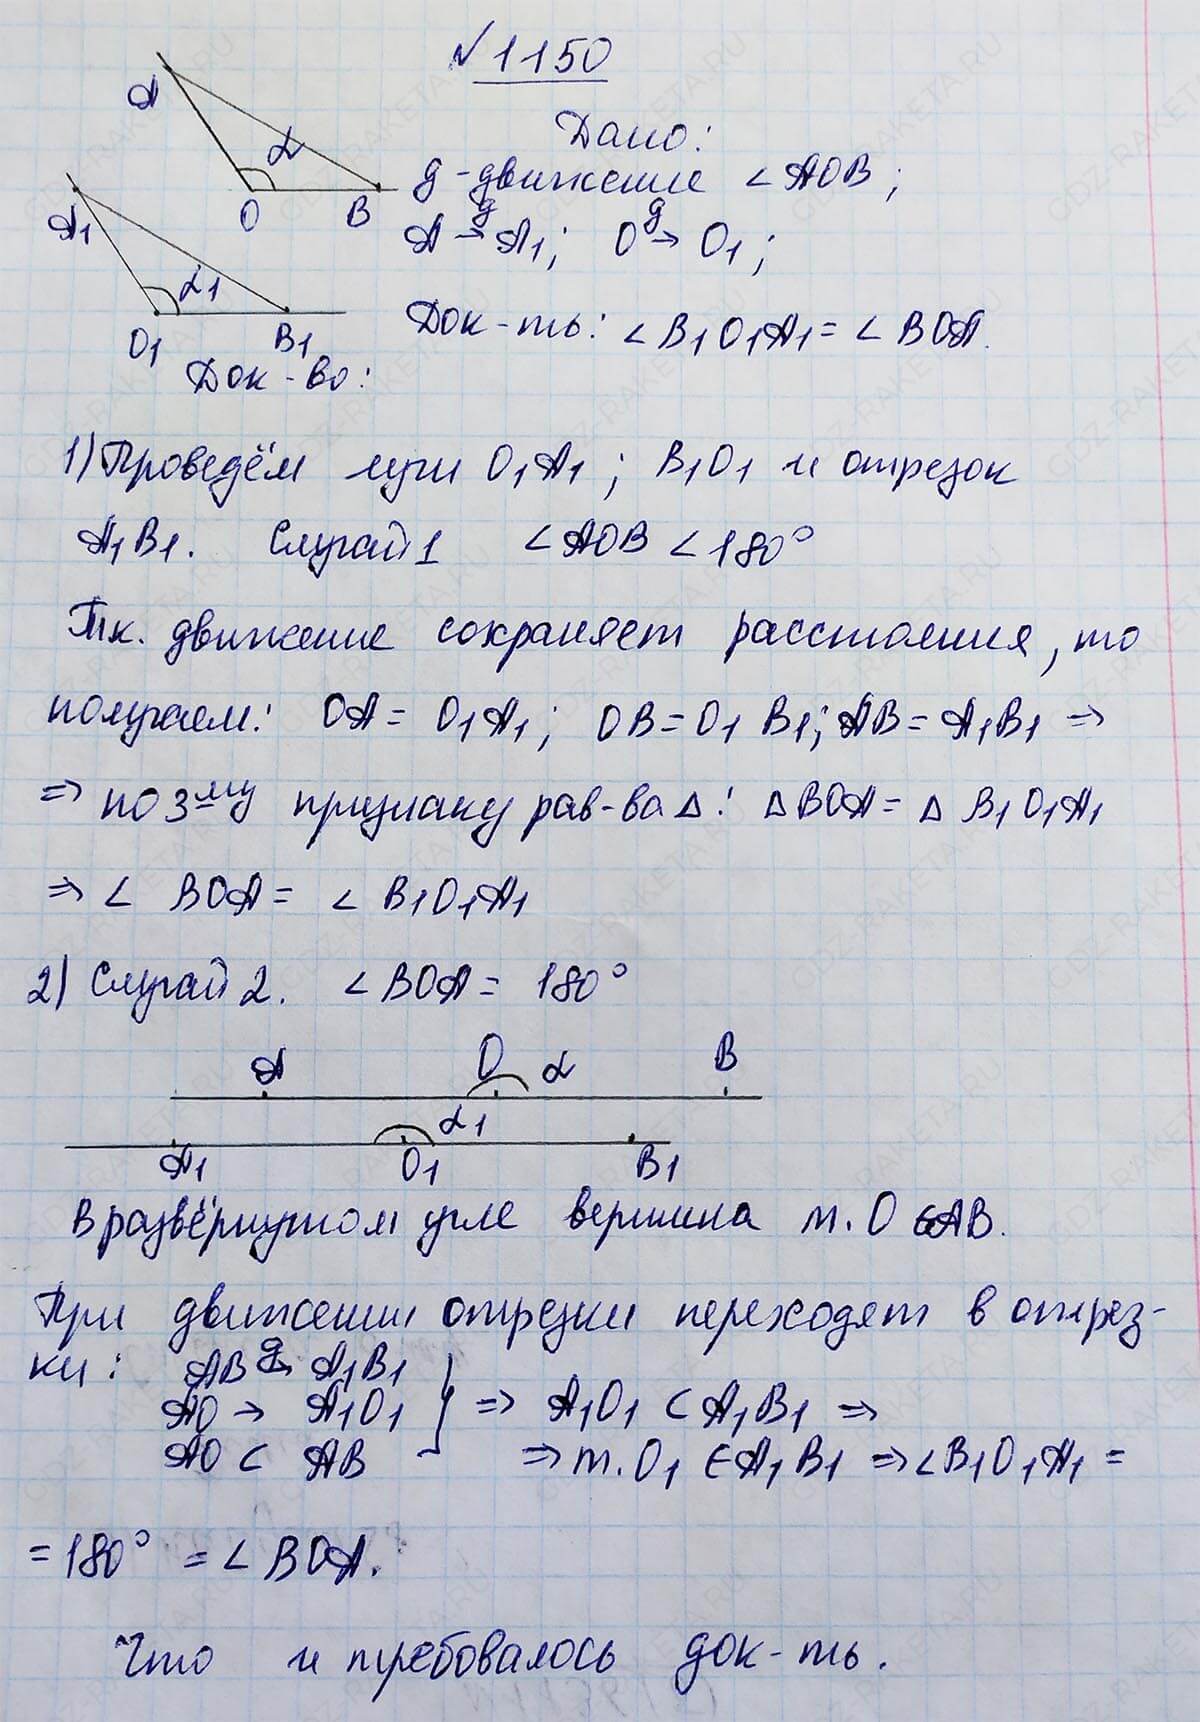 №1150
A
α
O
B
A1
α1
O1
B1
Дано:
g-движение ∠AOB;
A g→ A1; O g→ O1;
Док-ть: ∠B1O1A1 = ∠BOA.
Док-во:
1) Проведём лучи O1A1; B1O1 и отрезок
A1B1. Случай 1 ∠AOB < 180°
Т.к. движение сохраняет расстояния, то
получаем: OA = O1A1; OB = O1B1; AB = A1B1 ⇒
⇒ по 3му признаку рав-ва Δ: ΔBOA = ΔB1O1A1
⇒ ∠BOA = ∠B1O1A1
2) Случай 2. ∠BOA = 180°
A O α B
α1
A1 O1 B1
В развёрнутом угле вершина т. O ∈ AB.
При движении отрезки переходят в отрез-
ки: AB g→ A1B1
AO → A1O1 } ⇒ A1O1 ⊂ A1B1 ⇒
AO ⊂ AB ⇒ т. O1 ∈ A1B1 ⇒ ∠B1O1A1 =
= 180° = ∠BOA.
Что и требовалось док-ть.
GDZ-RAKETA.RU